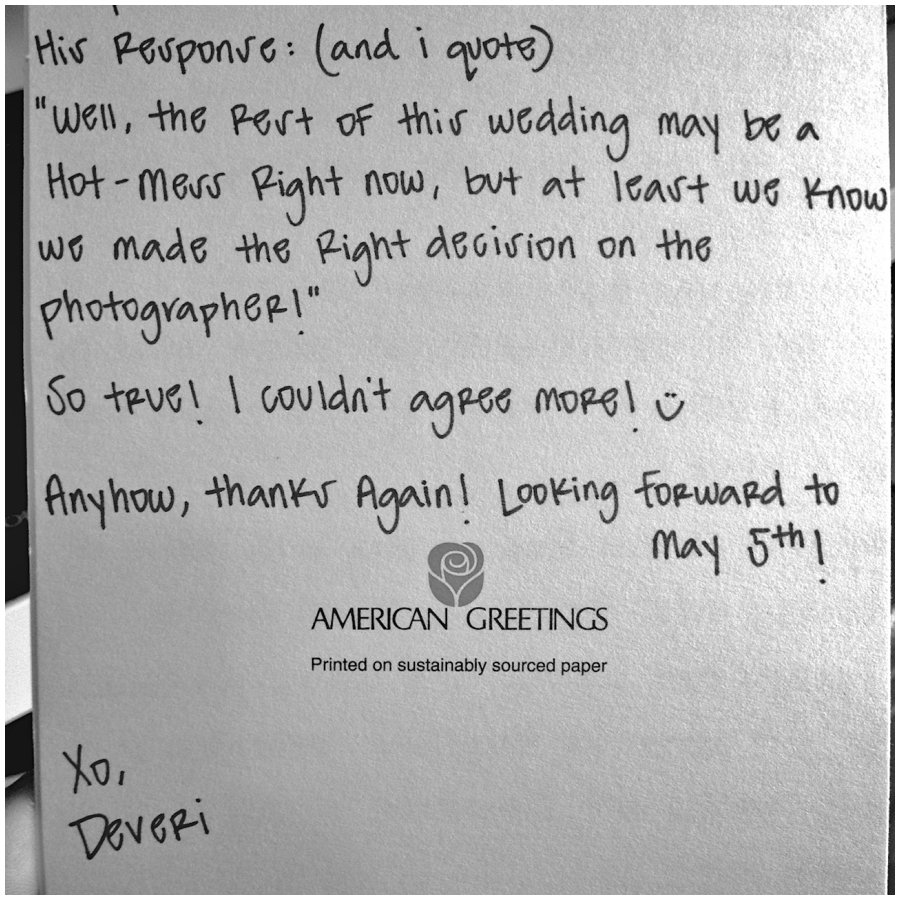 His Response: (and i quote)
"Well, the Rest of this wedding may be a
Hot-mess Right now, but at least we know
we made the Right decision on the
photographer!"
So true! I couldn't agree more! :)
Anyhow, thanks Again! Looking forward to
may 5th!
AMERICAN GREETINGS
Printed on sustainably sourced paper
Xo,
Deveri